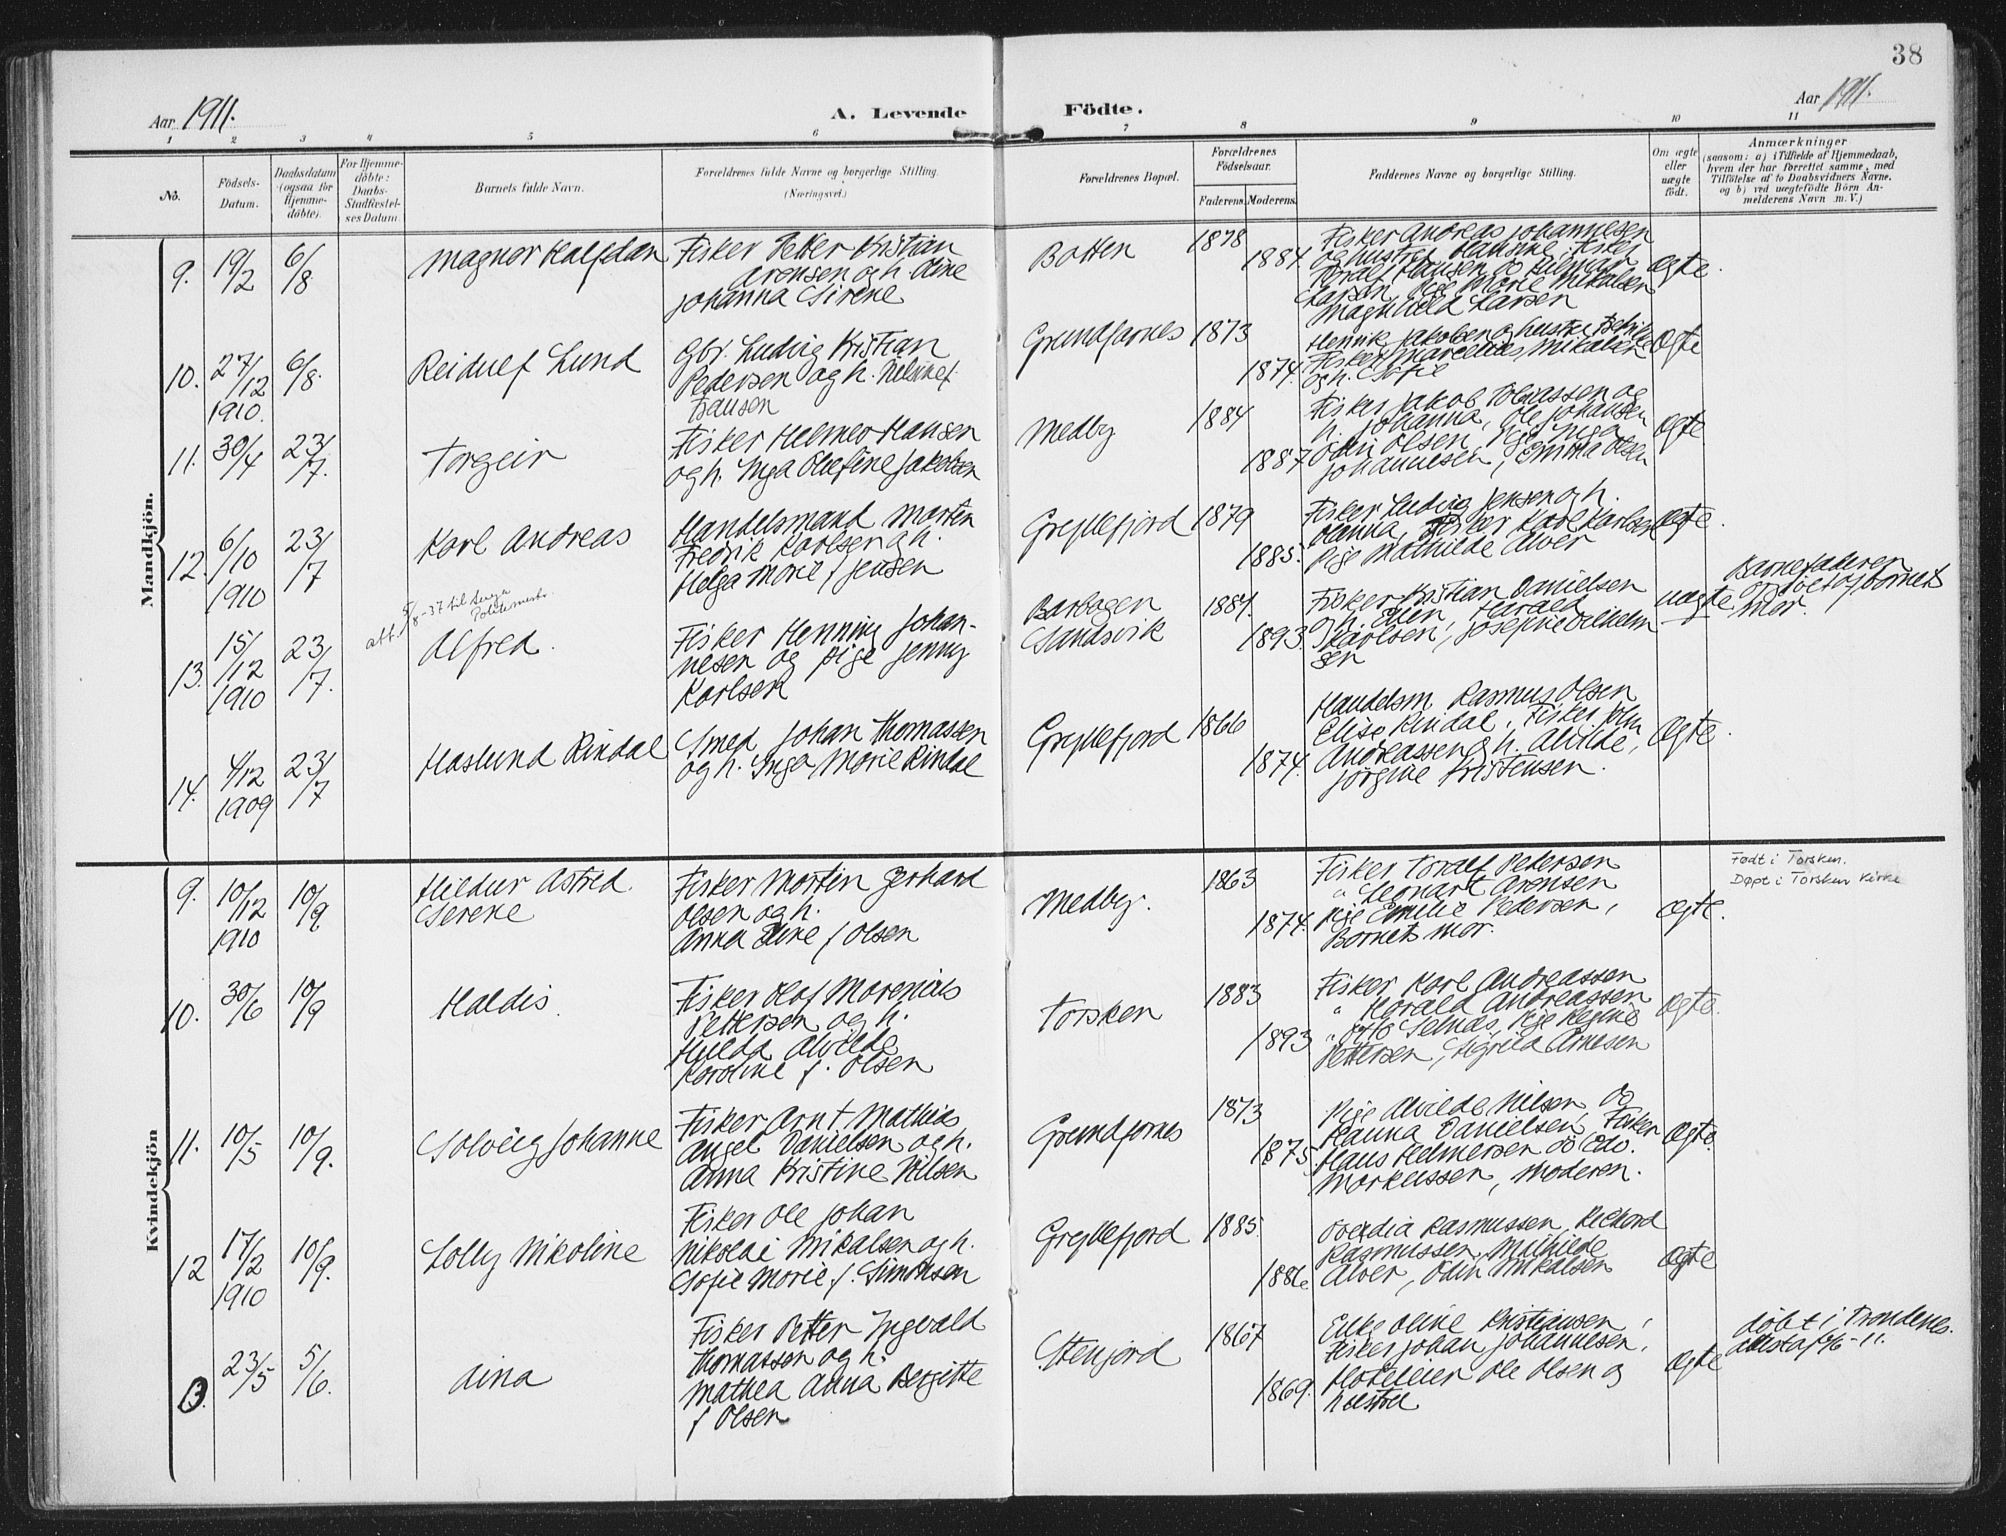 38
Aar 1911.
A. Levende Födte.
Aar 1911.
1 2 3 4 5 6 7 8 9 10 11
No.
Födsels-
Datum.
Daabsdatum
(ogsaa för
Hjemme-
döbte).
For Hjemme-
döbte:
Daabs-
Stadfæstel-
ses Datum.
Barnets fulde Navn.
Forældrenes fulde Navne og borgerlige Stilling.
(Næringsvei.)
Forældrenes Bopæl.
Forældrenes
Födselsaar.
Faderens. Moderens.
Faddernes Navne og borgerlige Stilling.
Om ægte
eller
uægte
födt.
Anmærkninger
(saasom: a) i Tilfælde af Hjemmedaab,
hvem der har forrettet samme, med
Tilföielse af to Daabsvidners Navne,
og b) ved uægtefödte Börn An-
melderens Navn m. V.)
Mandkjön.
9. 19/2 6/8 Magnor Halfdan
Fisker Petter Kristian
Aronsen og h. Oline
Johanna Sirene
Botten 1878 1884.
Fisker Andreas Johannesen
og hustru Hansine, Fisker
Toralf Hansen do Hilmar
Larsen, Pige Marie Mikalsen
Magnhild Larsen
Ægte.
10. 27/12 1910. 6/8. Reidulf Lund
Gbr. Ludvig Kristian
Pedersen og h. Nilsine f.
Hansen
Grundfarnes 1873 1874.
Henrik Jakobsen og hustru
Fisker Marcelius Mikalsen
og h. Sofie
Ægte
11. 30/4 23/7. Torgeir
Fisker Helmer Hansen
og h. Inga Olufine Jakobsen
Medby 1884 1887
Fisker Jakob Tobiassen og
h. Johanna, Ole Johansen
Odin Olsen, Pige Inga
Johannesen, Emma Olsen
Ægte
12. 6/10 1910 23/7 Karl Andreas
Handelsmand Morten
Fredrik Karlsen og h.
Helga Marie f Jensen
Gryllefjord 1879 1885.
Fisker Ludvig Jensen og h.
Hanna, Fisker Karl Karlsen
Pige Mathilde Alver
Ægte.
13. 15/12 1910 23/7.
att. 5/8-37 til Senja
Politimestr.
Alfred.
Fisker Henning Johan-
nesen og pige Jenny
Karlsen
Barbogen
Sandsvik
1884. 1893.
Fisker Kristian Danielsen
og h. Elen, Harald
Karlsen, Josefine Vilhelm
sen
uægte
Barnefaderen
opgivet af barnets
mor.
14. 4/12 1909 23/7 Haslund Rindal
Smed Johan Thomassen
og h. Inga Marie Rindal
Gryllefjord 1866 1874.
Handelsm Rasmus Olsen
Elise Rindal, Fisker John
Andreassen og h. Alvilde,
Jörgine Kristensen.
Ægte.
Kvindekjön
9. 10/12 1910 10/9 Hildur Astrid
Serene
Fisker Morten Gerhard
Olsen og h.
Anna Oline f Olsen
Medby. 1863 1874.
Fisker Toralf Pedersen
" Leonart Aronsen
Pige Emilie Pedersen,
Barnets mor.
Ægte.
Født i Torsken.
Døpt i Torsken Kirke
10. 30/6 10/9 Haldis.
Fisker Olaf Marenius
Pettersen og h.
Hulda Alvilde
Karoline f. Olsen
Torsken 1883 1893
Fisker Karl Andreassen
" Harald Andreassen
" Otto Selnæs, Pige Regine
Pettersen, Sigrid Arnesen
Ægte.
11. 10/5 10/9. Solveig Johanne
Fisker Arnt Mathias
Angel Danielsen og h.
Anna Kristine Nilsen
Grundfarnes 1873 1875.
Pige Alvilde Nilsen, do
Hanna Danielsen, Fisker
Hans Helmersen do Edv.
Markussen, Moderen.
Ægte.
12 17/2 1910 10/9. Lolly Nikoline
Fisker Ole Johan
Nikolai Mikalsen og h.
Sofie Marie f. Simonsen
Gryllefjord 1885. 1886
Ovedia Rasmussen, Rikhard
Rasmussen, Mathilde
Alver, Odin Mikalsen
Ægte
13. 23/5 5/6. Aina
Fisker Petter Ingvald
Thomassen og h.
Mathea Anna Bergitte
f Olsen
Stenfjord 1867 1869.
Enke Oline Kristiansen,
Fisker Johan Johannesen,
Hoteleier Ole Olsen og
hustru
Ægte
döbt i Trondenes.